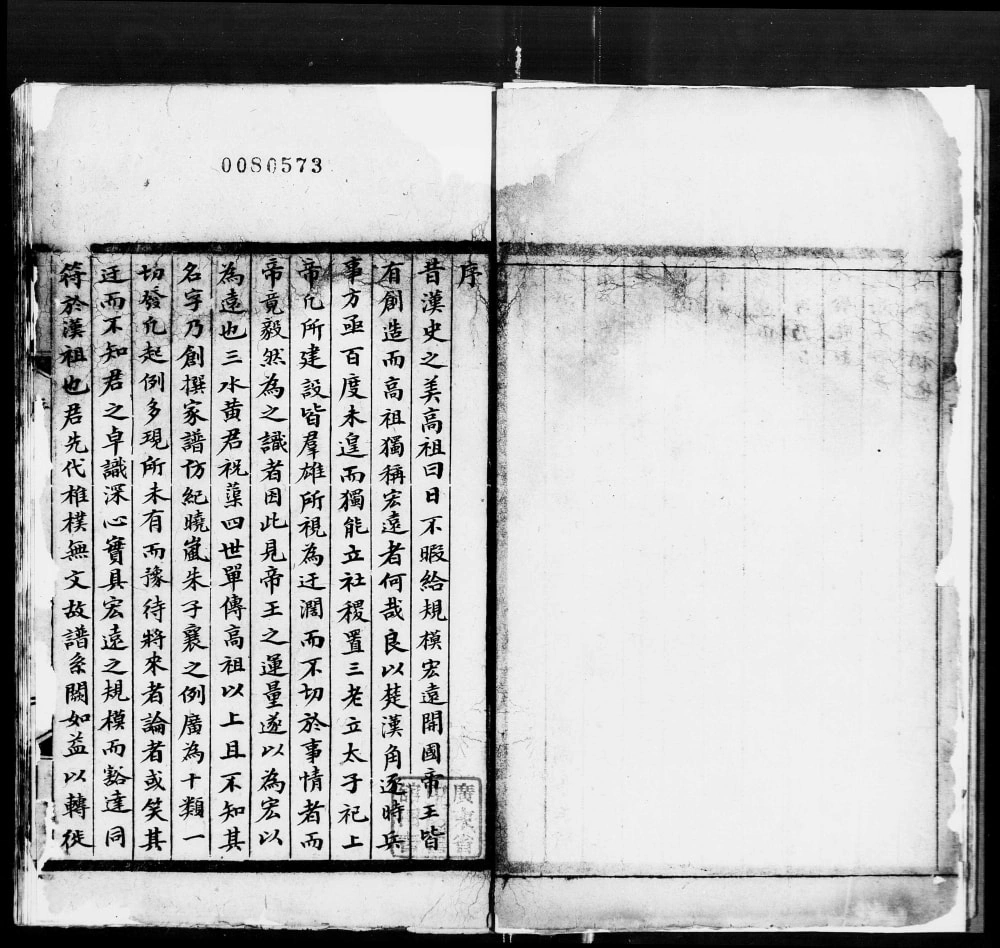 0080573
序
昔漢史之美高祖曰日不暇給規模宏遠開國帝王皆
有創造而高祖獨稱宏遠者何哉良以楚漢角逐時兵
事方亟百度未遑而獨能立社稷置三老立太子祀上
帝凢所建設皆羣雄所視為迂濶而不切於事情者而
帝竟毅然為之識者因此見帝王之運量遂以為宏以
為遠也三水黄君祝蕖四世單傳高祖以上且不知其
名字乃創撰家譜仿紀曉嵐朱子襄之例廣為十類一
切發凢起例多現所未有而豫待將來者論者或笑其
迂而不知君之卓識深心實具宏遠之規模而豁達同
符於漢祖也君先代椎樸無文故譜系闕如益以轉徙
廣東省